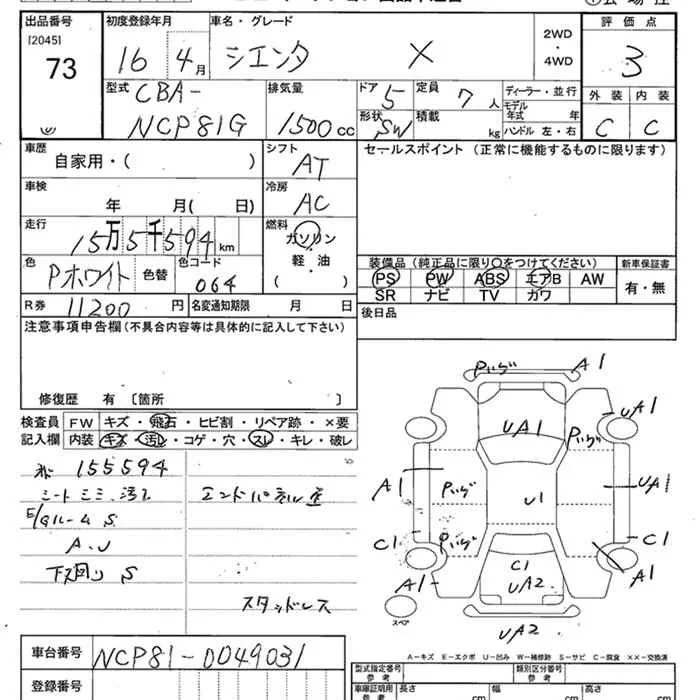 出品番号
[2045]
73
初度登録年月
16 4月
車名・グレード
シエンタ X
2WD
・
4WD
評価点
3
型式
CBA-
NCP81G
排気量
1500cc
ドア 5
定員 7人
ディーラー・並行
形状 SW
積載 kg
モデル年式 年
ハンドル 左・右
外装 内装
C C
車歴
自家用・( )
シフト
AT
セールスポイント (正常に機能するものに限ります)
車検
年 月( 日)
冷房
AC
走行
15万5千594km
燃料
ガソリン
・
軽・油
( )
色
Pホワイト
色替
色コード
064
装備品(純正品に限り○をつけてください)
新車保証書
PS PW ABS エアB AW
SR ナビ TV カワ
有・無
R券 11200円
名変通知期限 月 日
後日品
注意事項申告欄(不具合内容等は具体的に記入して下さい)
修復歴 有 〔箇所 〕
検査員
記入欄
FW キズ・飛石・ヒビ割・リペア跡・×要
内装 キズ・汚レ・コゲ・穴・スレ・キレ・破レ
155594
エンドパネル
E/Gルーム S
A.U
下廻り S
スタッドレス
車台番号 NCP81-0049031
登録番号
A1
UA1
UA1
A1
UA1
U1
C1
C1
C1
UA2
A1
A1
UA2
スペア
A-キズ E-エクボ U-凹み W-補修跡 S-サビ C-腐食 ××-交換済
型式指定番号
参考
類別区分番号
参考
車庫証明用
参考
長さ cm
幅 cm
高さ cm